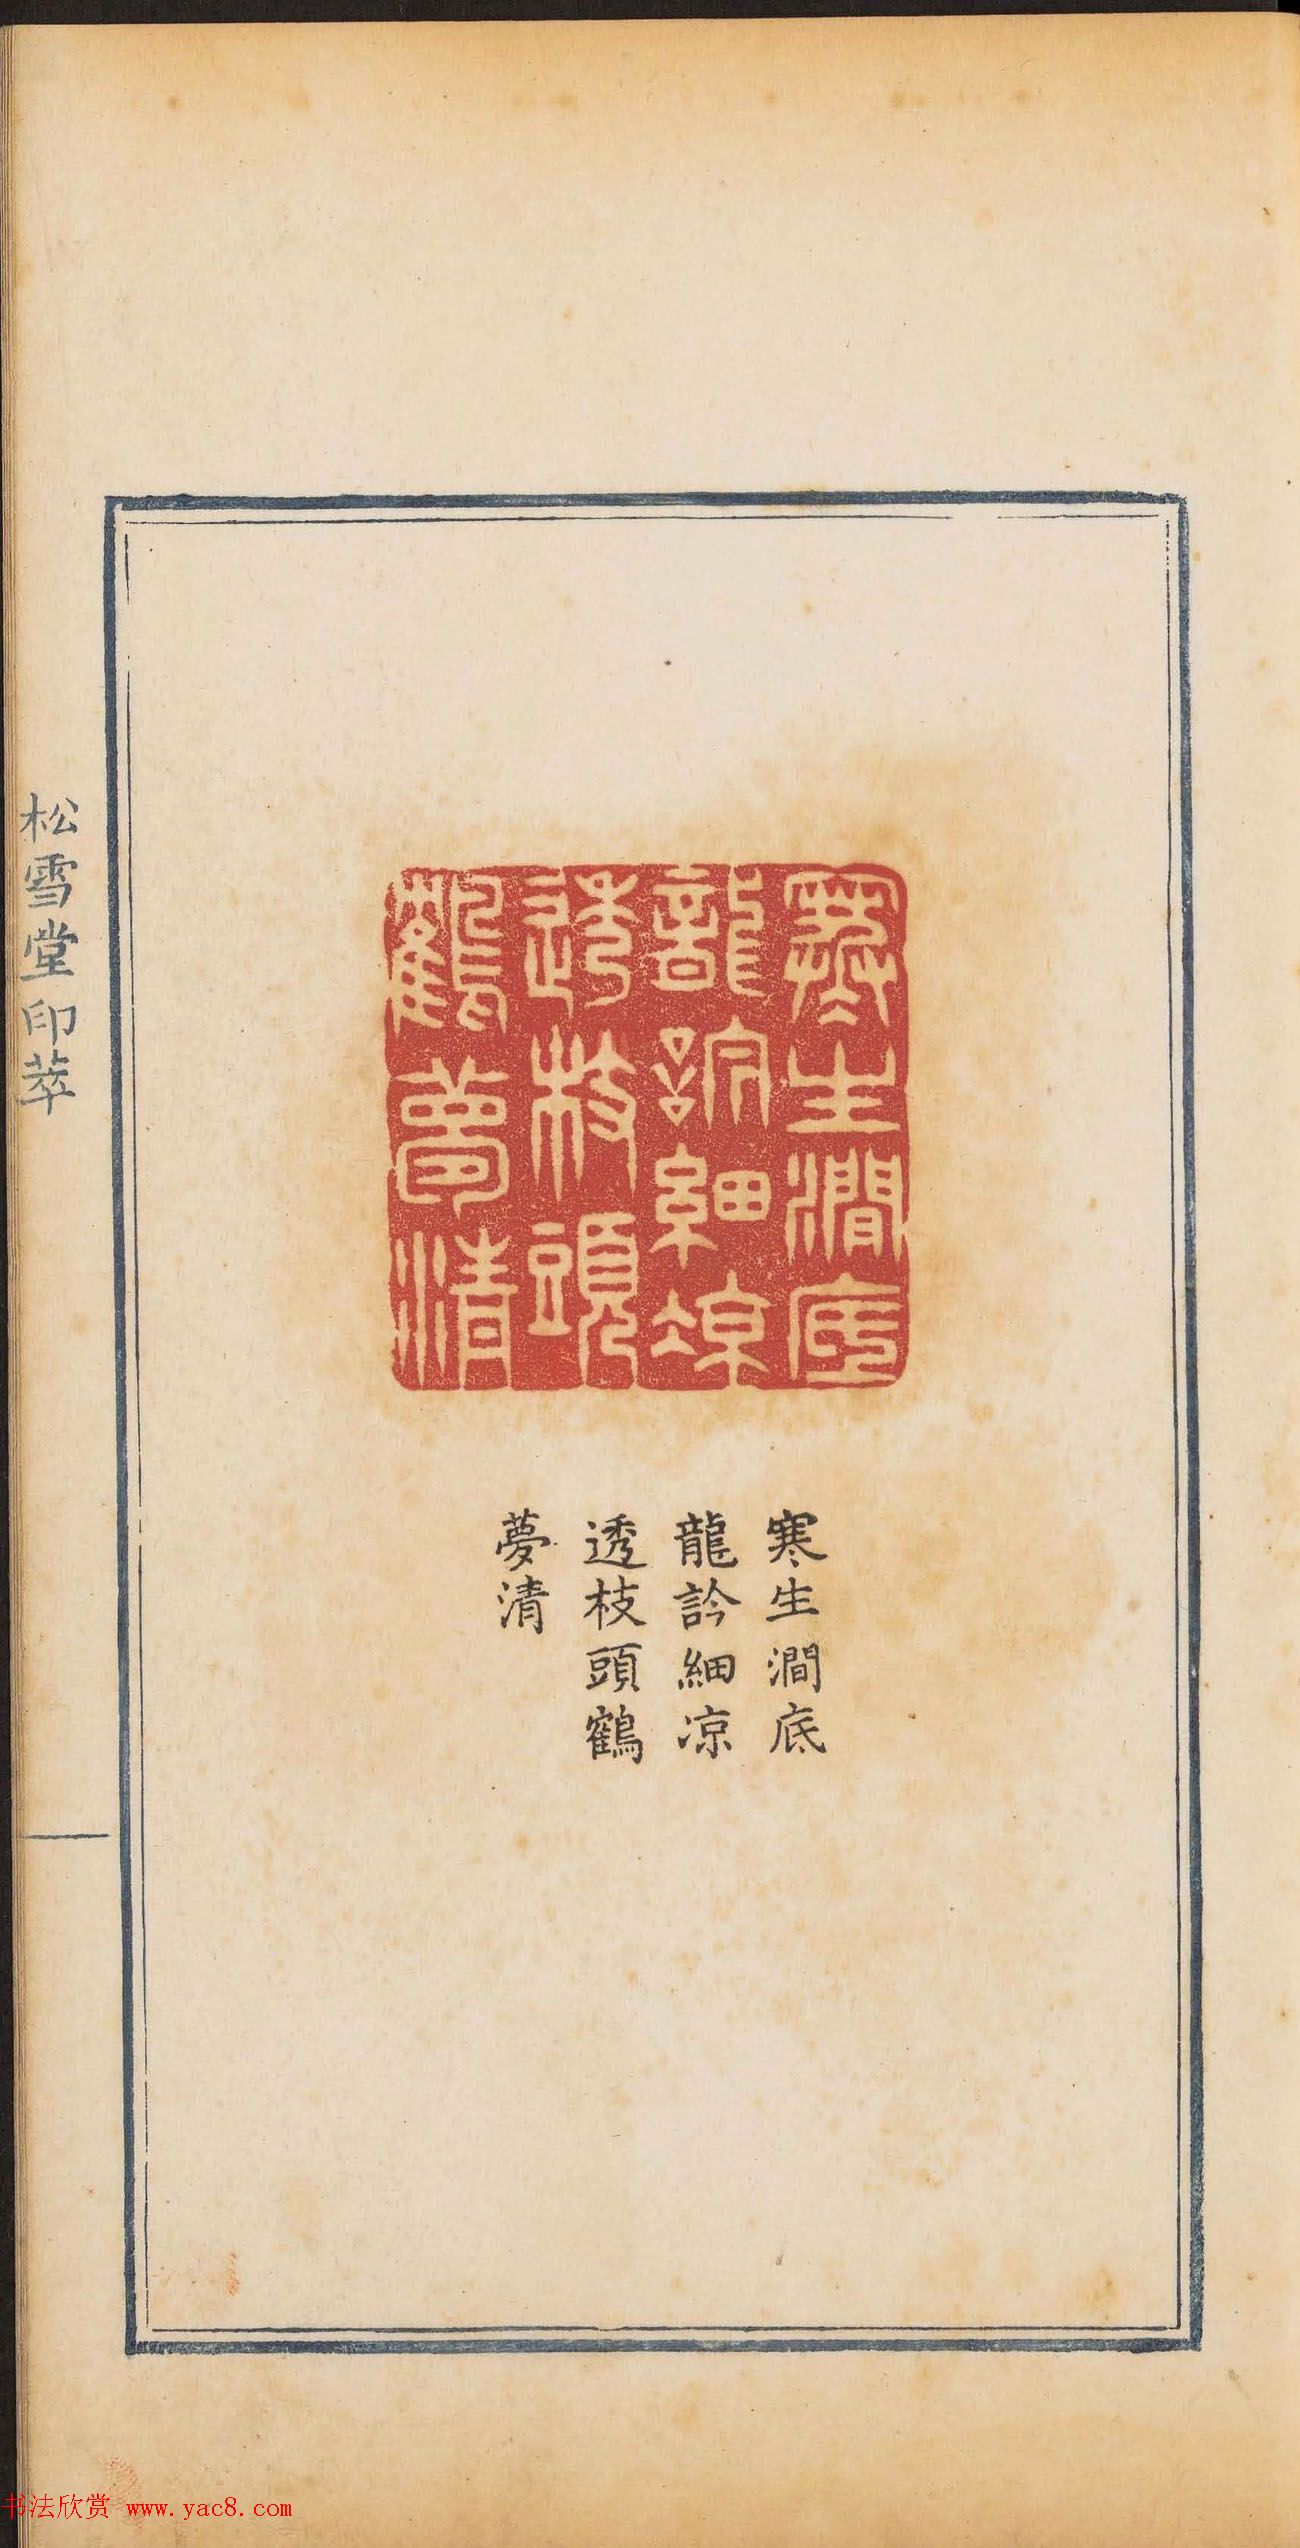 寒生澗底
龍訡細凉
透枝頭
鶴夢清
寒生澗底
龍訡細凉
透枝頭鶴
夢清
松雪堂印萃
书法欣赏 www.yac8.com